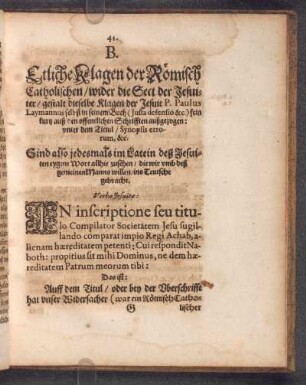 41.
B.
Etliche Klagen der Römisch
Catholischen / wider die Sect der Jesui-
ter / gestalt dieselbe Klagen der Jesuit P. Paulus
Laymannus selbst in seinem Buch (Justa defensio &c.) fein
kurtz auß den offentlichen Schrifften außgezogen:
vnter dem Titul / Synopsis erro-
rum, &c.
Sind also jedesmals im Latein deß Jesui-
ten eygene Wort allhie zusehen / die wir vmb deß
gemeinen Manns willen, ins Teutsche
gebracht.
Verba Jesuitæ:
IN inscriptione seu titu-
lo Compilator Societatem Jesu sugil-
lando comparat impio Regi Achab, a-
lienam hæreditatem petenti; Cui respondit Na-
both: propitius sit mihi Dominus, ne dem hæ-
reditatem Patrum meorum tibi:
Das ist:
Auff dem Titul / oder bey der Vberschrifft
hat vnser Widersacher (war ein Römisch Catho-
G
lischer